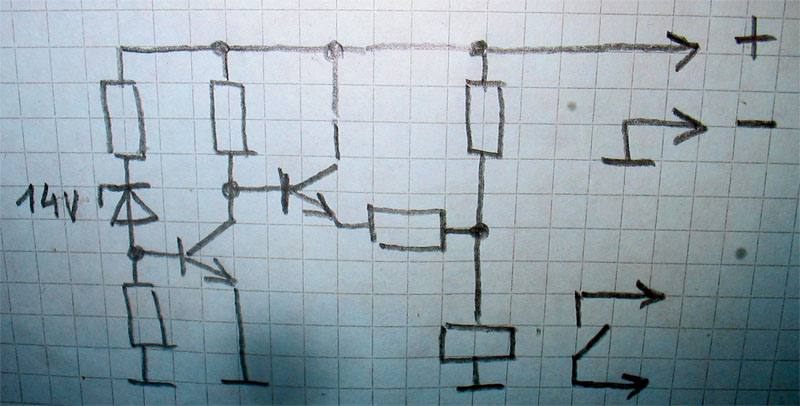 +
−
14V